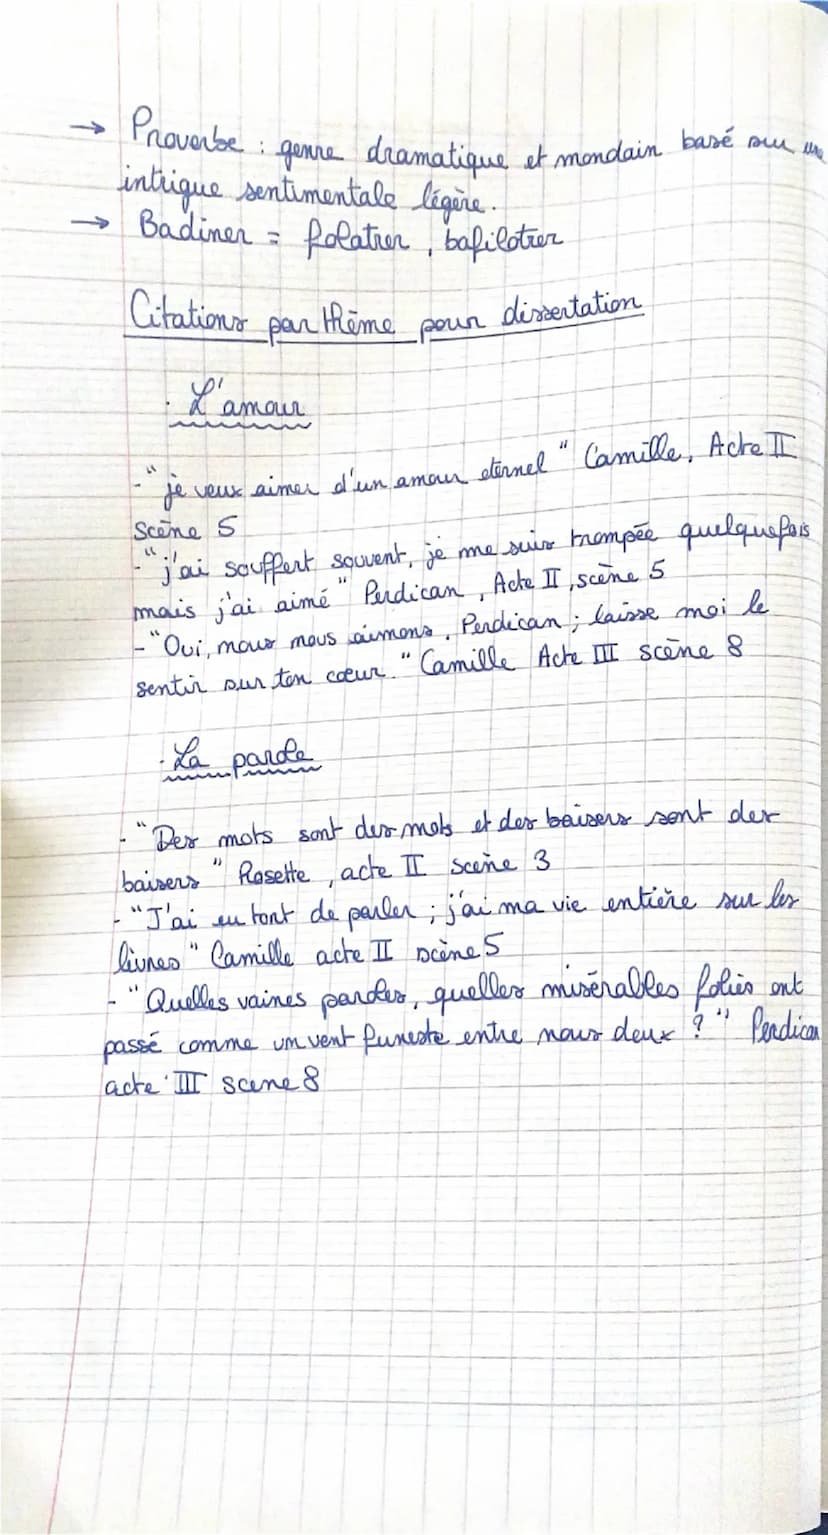 → Proverbe : genre dramatique et mondain basé sur une
intrigue sentimentale légère.
→ Badiner = folatrer, bafilotrer
Citations par thème pour dissertation
· L'amour
- "je veux aimer d'un amour éternel" Camille, Acte II
Scène 5
- "j'ai souffert souvent, je me suis trompée quelquefois
mais j'ai aimé" Perdican, Acte II, scène 5
- "Oui, nous nous aimons, Perdican ; laisse moi le
sentir sur ton cœur." Camille Acte III scène 8
· La parole
- "Des mots sont des mots et des baisers sont des
baisers" Rosette, acte II scène 3
- "J'ai eu tort de parler ; j'ai ma vie entière sur les
livres" Camille acte II scène 5
- "Quelles vaines paroles, quelles misérables folies ont
passé comme un vent funeste entre nous deux ?" Perdican
acte III scene 8